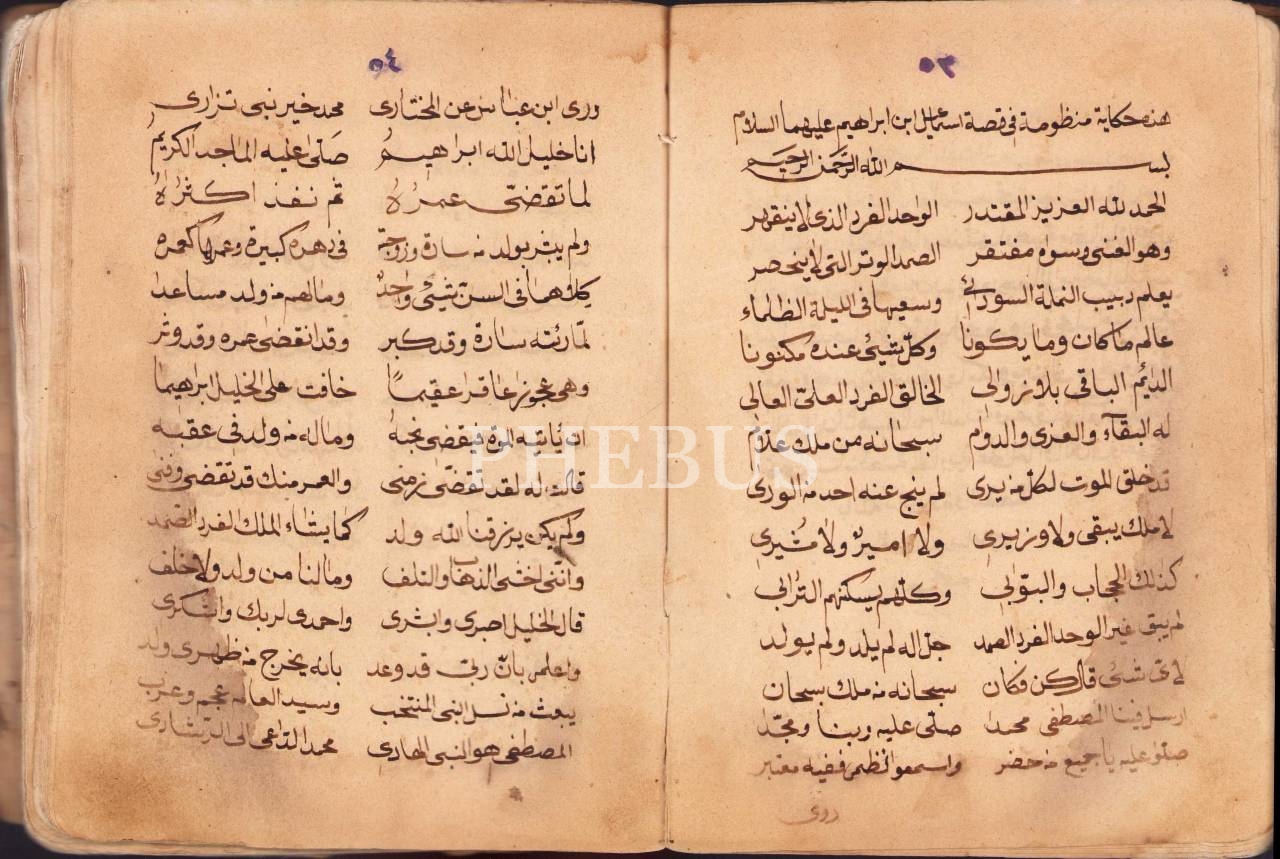 ٥٣
هذه حكاية منظومة في قصة اسماعيل ابن ابراهيم عليهما السلام
بسم الله الرحمن الرحيم
الحمد لله العزيز المقتدر الواحد الفرد الذى لا ينقهر
وهو الغنى وسواه مفتقر الصمد الوتر التى لا ينحصر
يعلم دبيب النملة السودائ وسعيها فى الليلة الظلماء
عالم ما كان وما يكونا وكل شيئ عنده مكنونا
الدايم الباقى بلا زوالى الخالق الفرد العلى العالى
له البقآء والعزى والدوام سبحانه من ملك علام
قد خلق الموت لكل من يرى لم ينج عنه احد من الورى
لا ملك يبقى ولا وزيرى ولا امير ولا مشيرى
كذلك الحجاب والبوابى وكلهم يسكنهم الترابى
لم يبق غير الوحد الفرد الصمد جل اله لم يلد ولم يولد
لاى شئ قال كن فكان سبحانه من ملك سبحان
ارسل فينا المصطفى محمدا صلى عليه ربنا ومجدا
صلوا عليه يا جميع من حضر واسمعوا نظمى ففيه معتبر
روى
٥٤
وروى ابن عباس عن المختارى محمد خير نبى نزارى
انا خليل الله ابراهيم صلى عليه الماجد الكريم
لما تقضى عمره ثم نفذ اكثره
ولم يبشر بولد من سارة وزوجة فى دهره كبيرة وعمرها كعمره
كلاهما فى السن شيئ واحد وما لهم من ولد مساعدا
لما رئته سارة وقد كبر وقد انقضى عمره وقد وتر
وهى عجوز عاقرا عقيما خافت على الخليل ابراهيما
ان يأتيه الموت فيقضى نحبه وماله من ولد فى عقبه
قالت له لقد تقضى زمنى والعمر منك قد تقضى وفنى
ولم يكن يرزقنا الله ولد كما يشاء الملك الفرد الصمد
واننى اخشى الذهاب والتلف وما لنا من ولد ولا خلف
قال الخليل اصبرى وابشرى واحمدى لربك واشكرى
واعلمى بان ربى قد وعد بانه يخرج من ظهرى ولد
يبعث من نسل النبى المنتخب وسيد العالم عجم وعرب
المصطفى هو النبى الهادى محمد الداعى الى الرشادى
PHEBUS